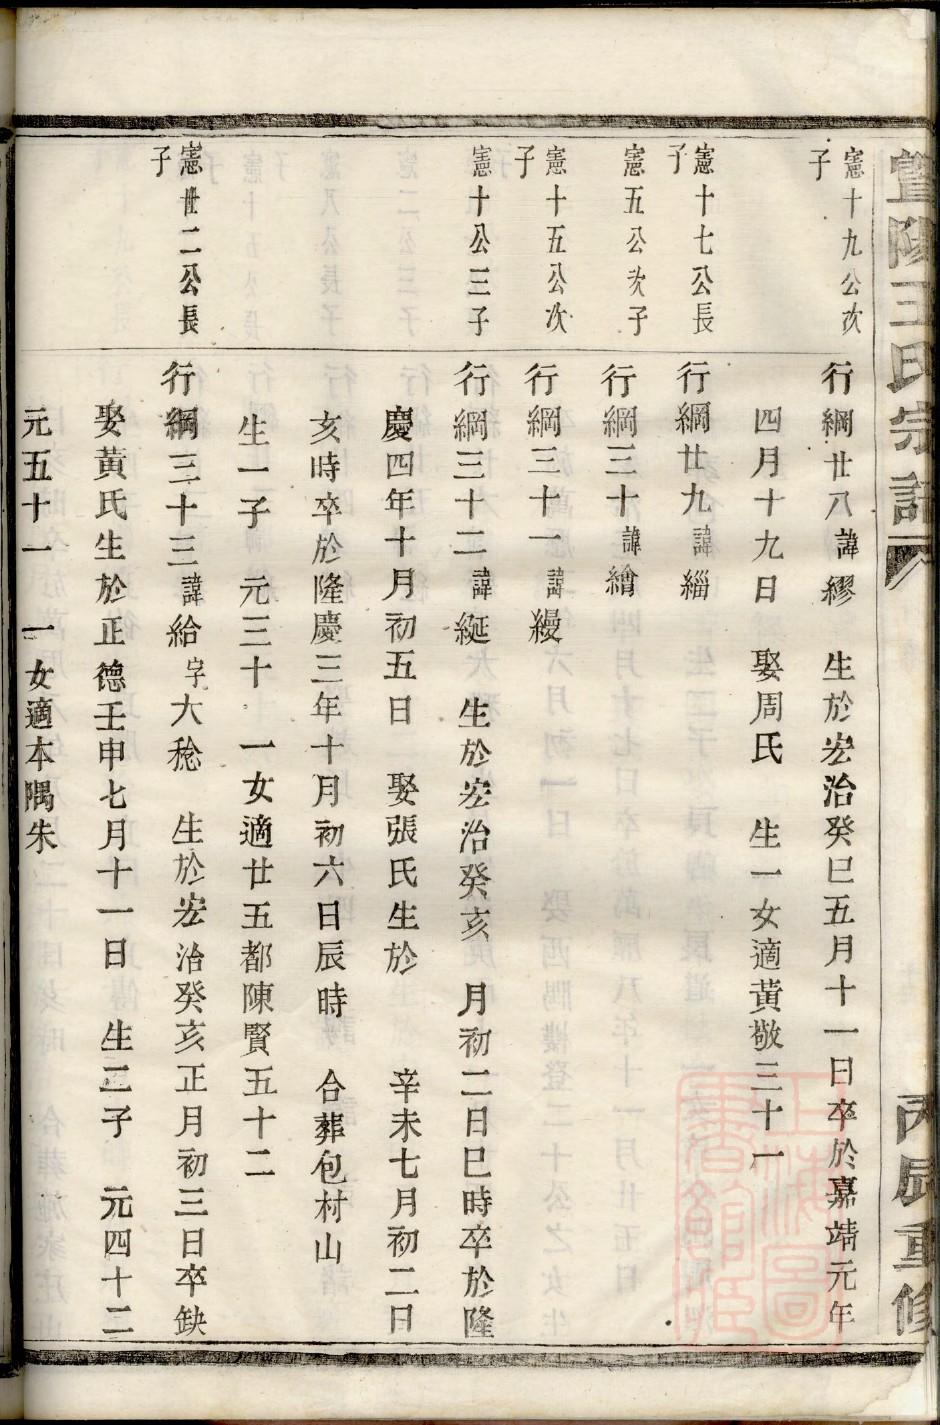 暨陽王氏宗譜
丙辰重修
憲十九公次
子
行綱廿八諱繆 生於宏治癸巳五月十一日卒於嘉靖元年
四月十九日 娶周氏 生一女適黃敬三十一
憲十七公長
子
行綱廿九諱緇
憲五公次子
行綱三十諱繪
憲十五公次
子
行綱三十一諱縵
憲十公三子
行綱三十二諱綖 生於宏治癸亥 月初二日巳時卒於隆
慶四年十月初五日 娶張氏生於 辛未七月初二日
亥時卒於隆慶三年十月初六日辰時 合葬包村山
生一子 元三十 一女適廿五都陳賢五十二
憲卅二公長
子
行綱三十三諱給字大稔 生於宏治癸亥正月初三日卒缺
娶黃氏生於正德壬申七月十一日 生二子 元四十二
元五十一 一女適本隅朱